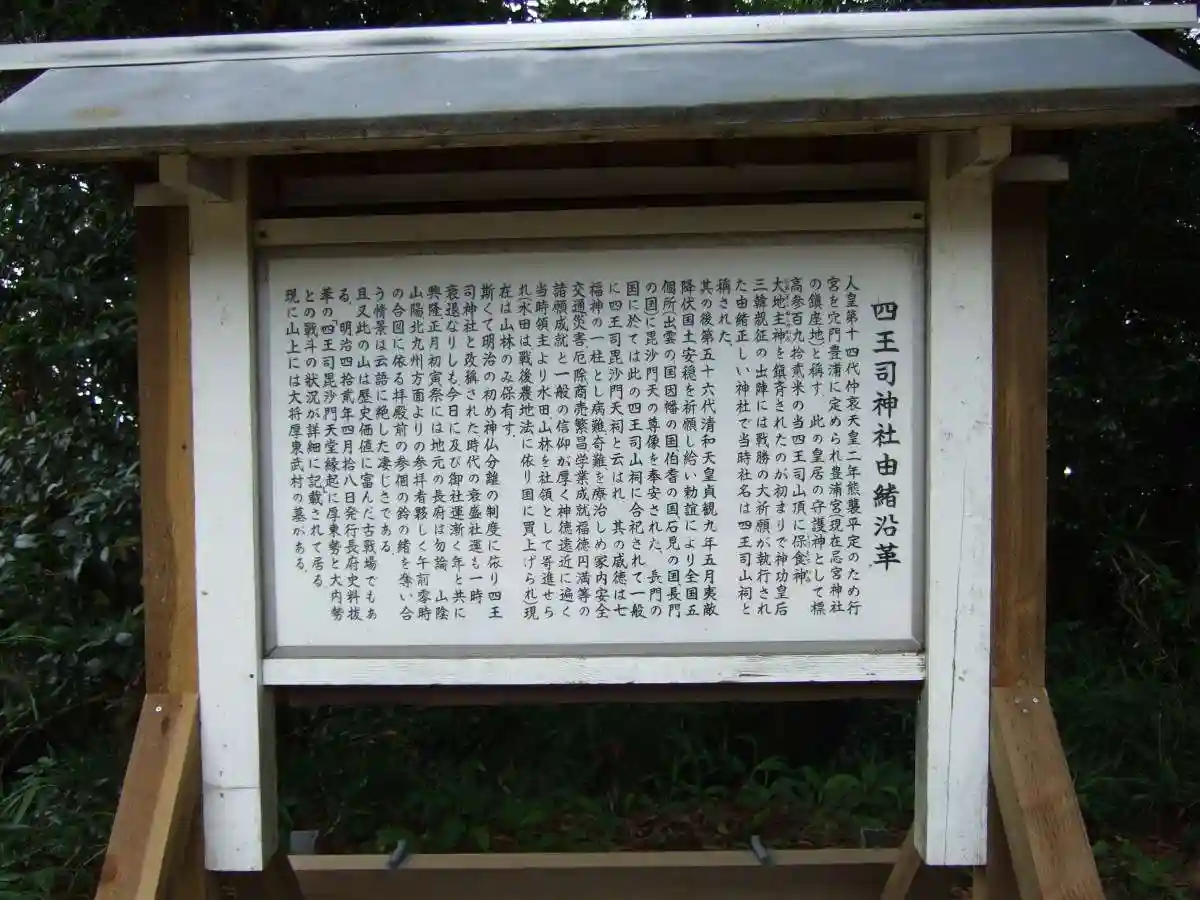 四王司神社由緒沿革
人皇第十四代仲哀天皇二年熊襲平定のため行
宮を穴門豊浦に定められ豊浦宮現在忌宮神社
の鎮座地)と稱す．此の皇居の守護神として標
高参百九拾貳米の当四王司山頂に保食神
大地主神を鎮斉されたのが初まりで神功皇后
三韓親征の出陣には戦勝の大祈願が執行され
た由緒正しい神社で当時社名は四王司山祠と
稱された．
其の後第五十六代清和天皇貞観九年五月夷敵
降伏国土安穏を祈願し給い勅諠により全国五
個所出雲の国因幡の国伯耆の国石見の国長門
の国に毘沙門天の尊像を奉安された．長門の
国に於ては此の四王司山祠に合祀されて一般
に四王司毘沙門天祠と云はれ．其の威徳は七
福神の一柱とし病難奇難を療治しめ家内安全
交通災害厄除商売繁昌学業成就福徳円満等の
諸願成就と一般の信仰が厚く神徳遠近に遍く
当時領主より水田山林を社領として寄進せら
れ(水田は戦後農地法に依り国に買上げられ)現
在は山林のみ保有す．
斯くて明治の初め神仏分離の制度に依り四王
司神社と改稱された時代の衰盛社運も一時
衰退なりしも今日に及び御社運漸く年と共に
興隆正月初寅祭には地元の長府は勿論．山陰
山陽北九州方面よりの参拝者夥しく午前零時
の合図に依る拝殿前の参個の鈴の緒を奪い合
う情景は云語に絶した凄じさである
且又此の山は歴史価値に富んだ古戦場でもあ
る．明治四拾貳年四月拾八日発行長府史料抜
革の「四王司毘沙門天堂縁起に厚東勢と大内勢
との戦斗の状況が詳細に記載されて居る
現に山上には大将厚東武村の墓がある．